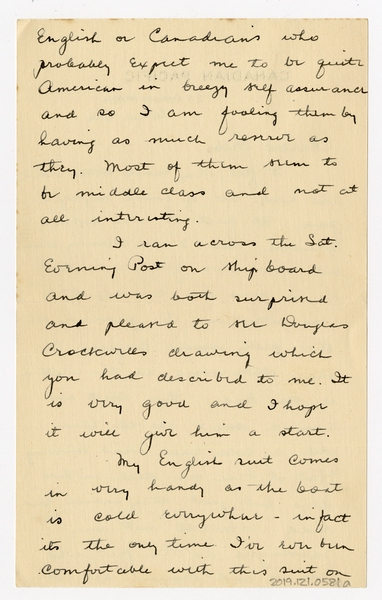 English or Canadians who
probably expect me to be quite
American in breezy self assurance
and so I am fooling them by
having as much reserve as
they. Most of them seem to
be middle class and not at
all interesting.
I ran across the Sat.
Evening Post on shipboard
and was both surprised
and pleased to see Douglas
Crockwell's drawing which
you had described to me. It
is very good and I hope
it will give him a start.
My English suit comes
in very handy as the boat
is cold everywhere - in fact
its the only time I've ever been
comfortable with this suit on
2019.121.0581a